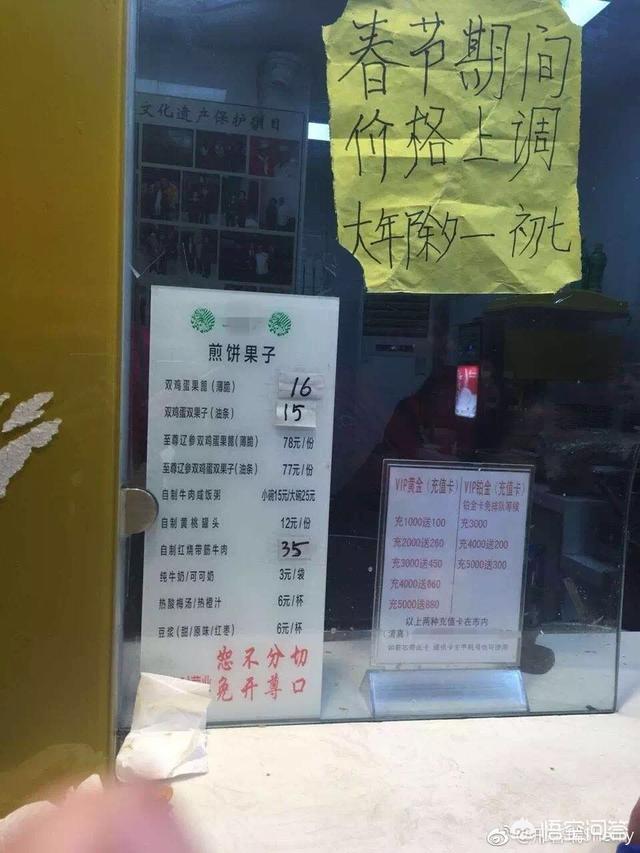 春节期间
价格上调
大年除夕一初七
文化遗产保护项目
煎饼果子
双鸡蛋果篦(薄脆) 16
双鸡蛋双果子(油条) 15
至尊辽参双鸡蛋果篦(薄脆) 78元/份
至尊辽参双鸡蛋双果子(油条) 77元/份
自制牛肉咸饭粥 小碗15元/大碗25元
自制黄桃罐头 12元/份
自制红烧带筋牛肉 35
纯牛奶/可可奶 3元/袋
热酸梅汤/热橙汁 6元/杯
豆浆(甜/原味/红枣) 6元/杯
恕不分切
免开尊口
VIP黄金(充值卡) VIP铂金(充值卡)
铂金卡免排队等候
充1000送100 充3000
充2000送260 充4000送200
充3000送450 充5000送300
充4000送660
充5000送880
以上两种充值卡在市内
(清真)
悟空问答